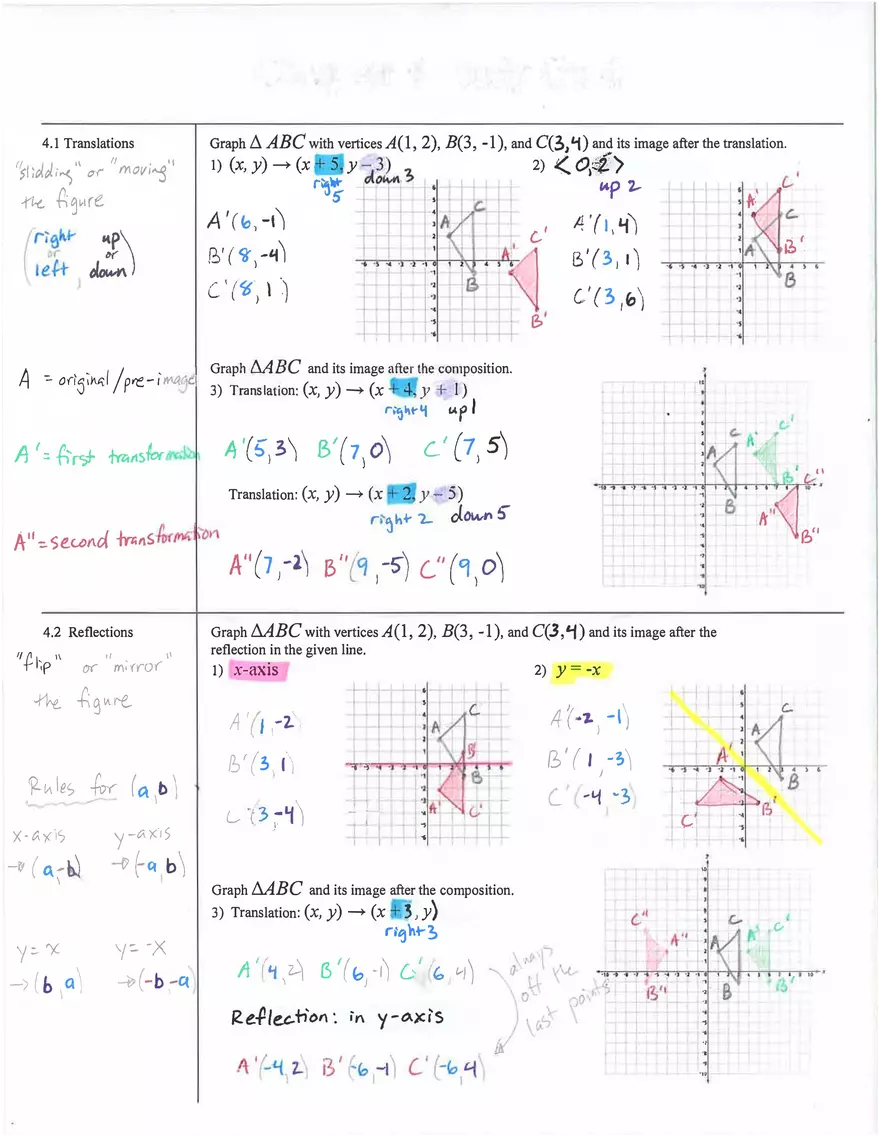 4.1 Translations
"slidding" or "moving"
the figure
(right or left, up or down)
Graph Δ ABC with vertices A(1, 2), B(3, -1), and C(3,4) and its image after the translation.
1) (x, y) → (x + 5, y – 3)
right 5
down 3
A'(6,-1)
B'(8,-4)
C'(8,1)
2) <0,2>
up 2
A'(1,4)
B'(3,1)
C'(3,6)
A = original/pre-image
A' = first transformation
A" = second transformation
Graph ΔABC and its image after the composition.
3) Translation: (x, y) → (x + 4, y + 1)
right 4 up 1
A'(5,3) B'(7,0) C'(7,5)
Translation: (x, y) → (x + 2, y – 5)
right 2 down 5
A"(7,-2) B"(9,-5) C"(9,0)
4.2 Reflections
"flip" or "mirror"
the figure
Rules for (a,b)
x-axis y-axis
→ (a,-b) → (-a,b)
y=x y=-x
→ (b,a) → (-b,-a)
Graph ΔABC with vertices A(1, 2), B(3, -1), and C(3,4) and its image after the
reflection in the given line.
1) x-axis
A'(1,-2)
B'(3,1)
C'(3,-4)
2) y = -x
A'(-2,-1)
B'(1,-3)
C'(-4,-3)
Graph ΔABC and its image after the composition.
3) Translation: (x, y) → (x + 3, y)
right 3
A'(4,2) B'(6,-1) C'(6,4)
always
off the
last points
Reflection: in y-axis
A'(-4,2) B'(-6,-1) C'(-6,4)